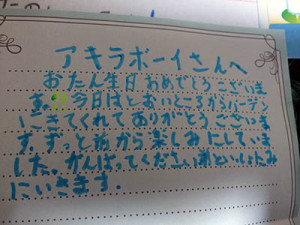 アキラボーイさんへ
おたん生日おめでとうございま
す。今日はとおいところからバーデン
にきてくれてありがとうございま
す。ずっと前から楽しみにしていま
した。がんばってください。弟といっしょにみ
にいきます。